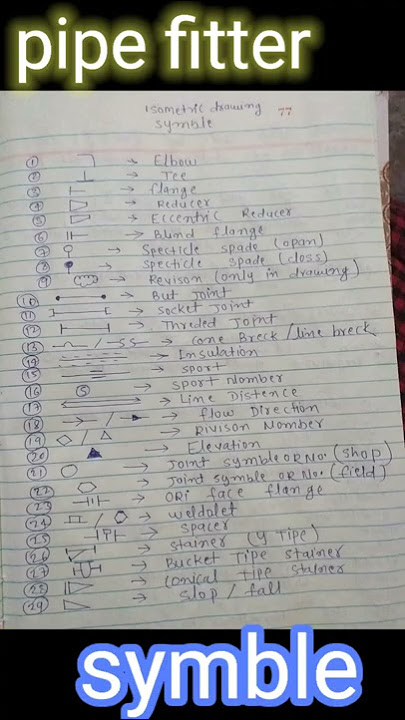 pipe fitter
isometric drawing 77
symble
① → Elbow
② → Tee
③ → flange
④ → Reducer
⑤ → Eccentric Reducer
⑥ → Blind flange
⑦ → Specticle spade (opan)
⑧ → Specticle spade (closs)
⑨ → Revison (only in drawing)
⑩ → But Joint
⑪ → Socket Joint
⑫ → Thrded Joint
⑬ / → cone Breck / line breck
⑭ → Insulation
⑮ → sport
⑯ Ⓢ → sport Nomber
⑰ → Line Distence
⑱ / → flow Direction
⑲ / → Rivison Nomber
⑳ → Elevation
㉑ → Joint symble OR No. (shop)
㉒ → Joint symble OR No. (field)
㉓ → ORi face flange
㉔ / → weldolet
㉕ → spacer
㉖ → stainer (Y Tipe)
㉗ → Bucket Tipe stainer
㉘ → conical tipe stainer
㉙ → slop / fall
symble